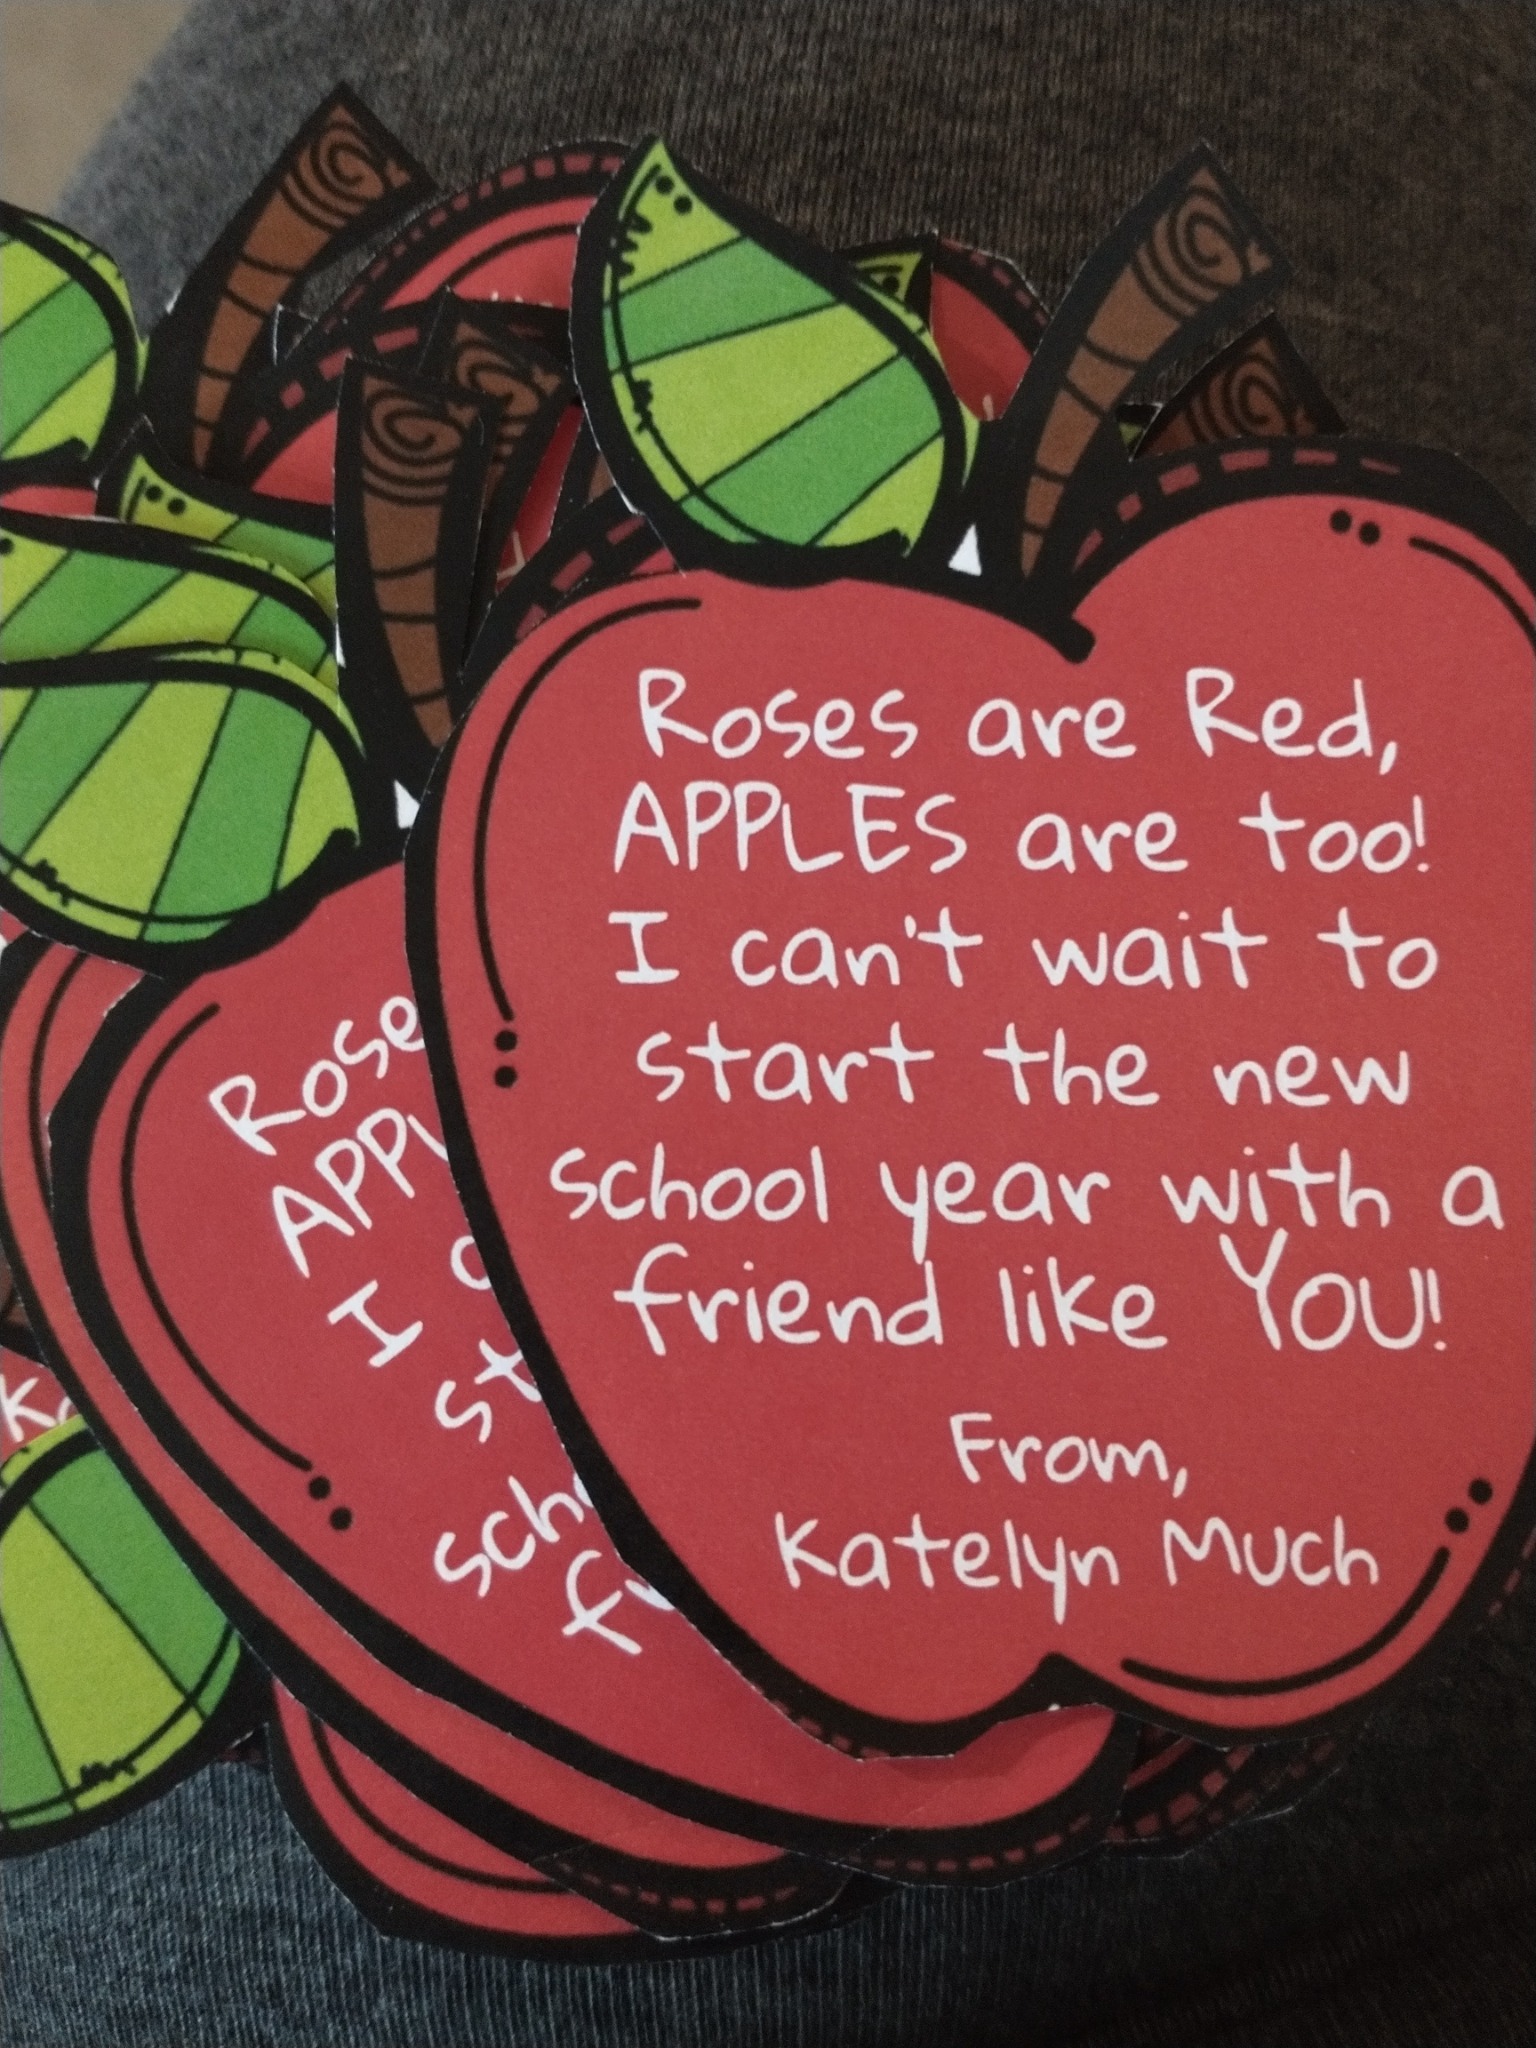 Roses are Red,
APPLES are too!
I can't wait to
start the new
school year with a
friend like YOU!
From,
Katelyn Much
Rose
APPL
I
st
scho